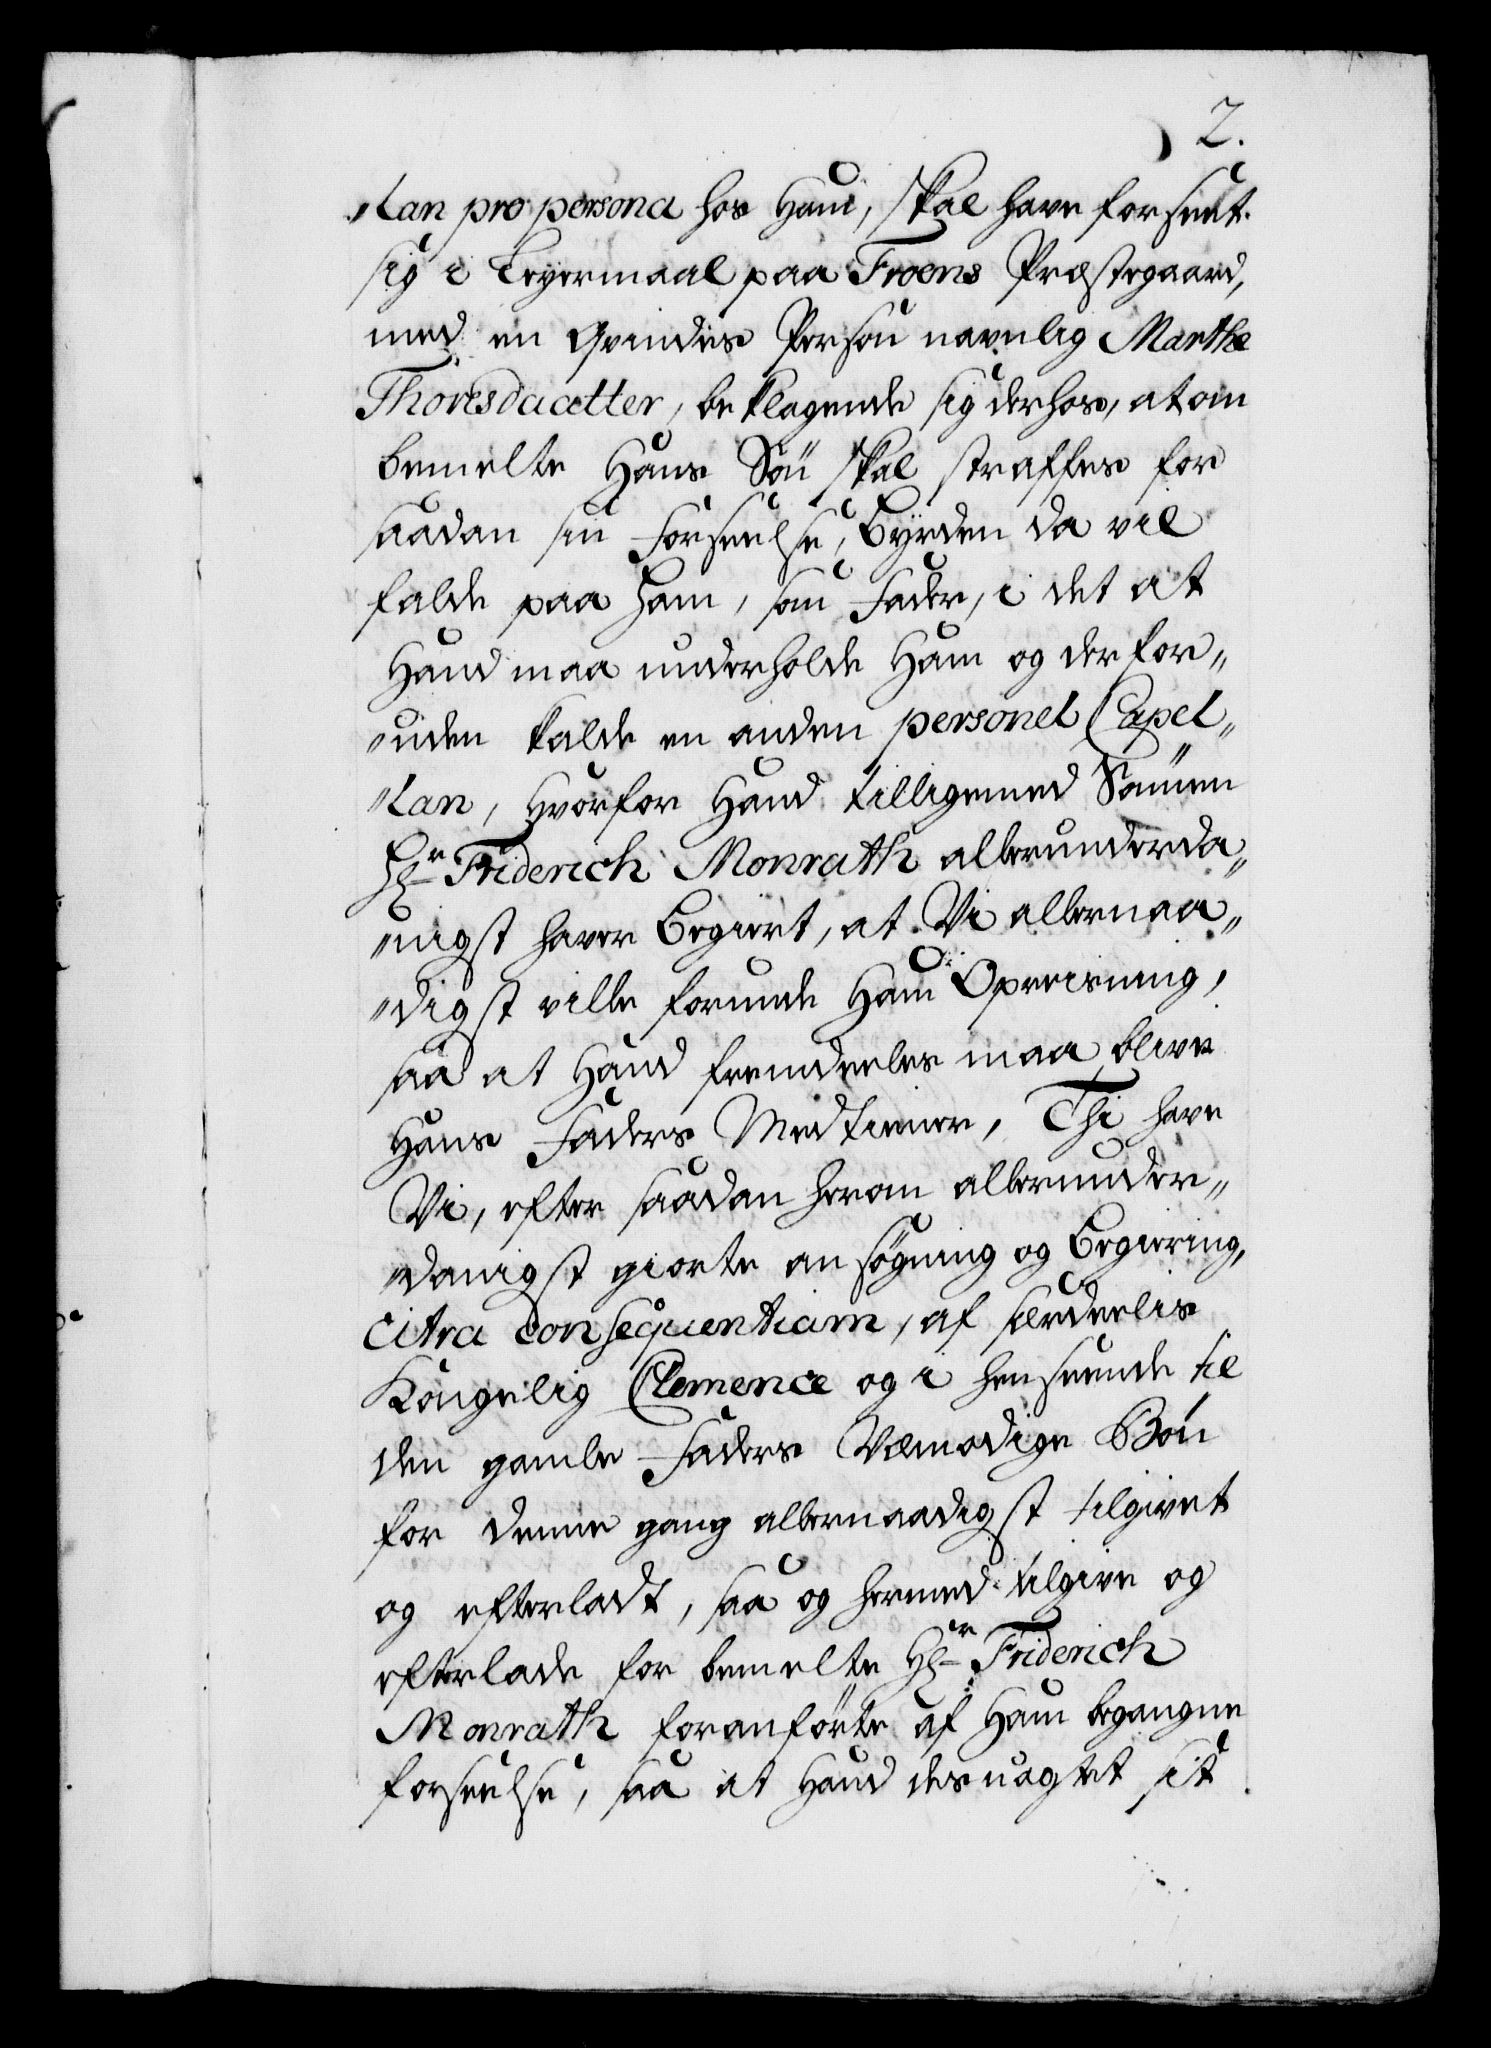 2.
„lan pro persona hos Ham, skal have forseet
sig i Leyermaal paa Froens Præstegaard,
med en Qvindes Person navnlig Marthe
Thoresdaatter, beklagende sig derhos, at om
bemelte Hans Søn skal straffes for
saadan sin Forseelse, Byrden da vil
falde paa Ham, som Fader, i det at
Hand maa underholde Ham og der for„
„uden kalde en anden personel Capel„
„lan, Hvorfor Hand tilligemed Sønnen
Hr Friderich Monrath allerunderda„
„nigst haver Begiert, at Vi allernaa„
„digst ville forunde Ham Opreisning,
saa at Hand fremdeeles maa blive
Hans Faders Medtiener, Thi have
Vi, efter saadan herom allerunder„
„danigst giorte ansøgning og Begiering,
citra consequentiam, af særdeelis
Kongelig Clemence og i henseende til
den gamle Faders Vemodige Bøn
for denne gang allernaadigst tilgivet
og efterladt, saa og hermed tilgive og
efterlade for bemelte Hr Friderich
Monrath foranførte af Ham begangne
forseelse, saa at Hand des uagtet sit